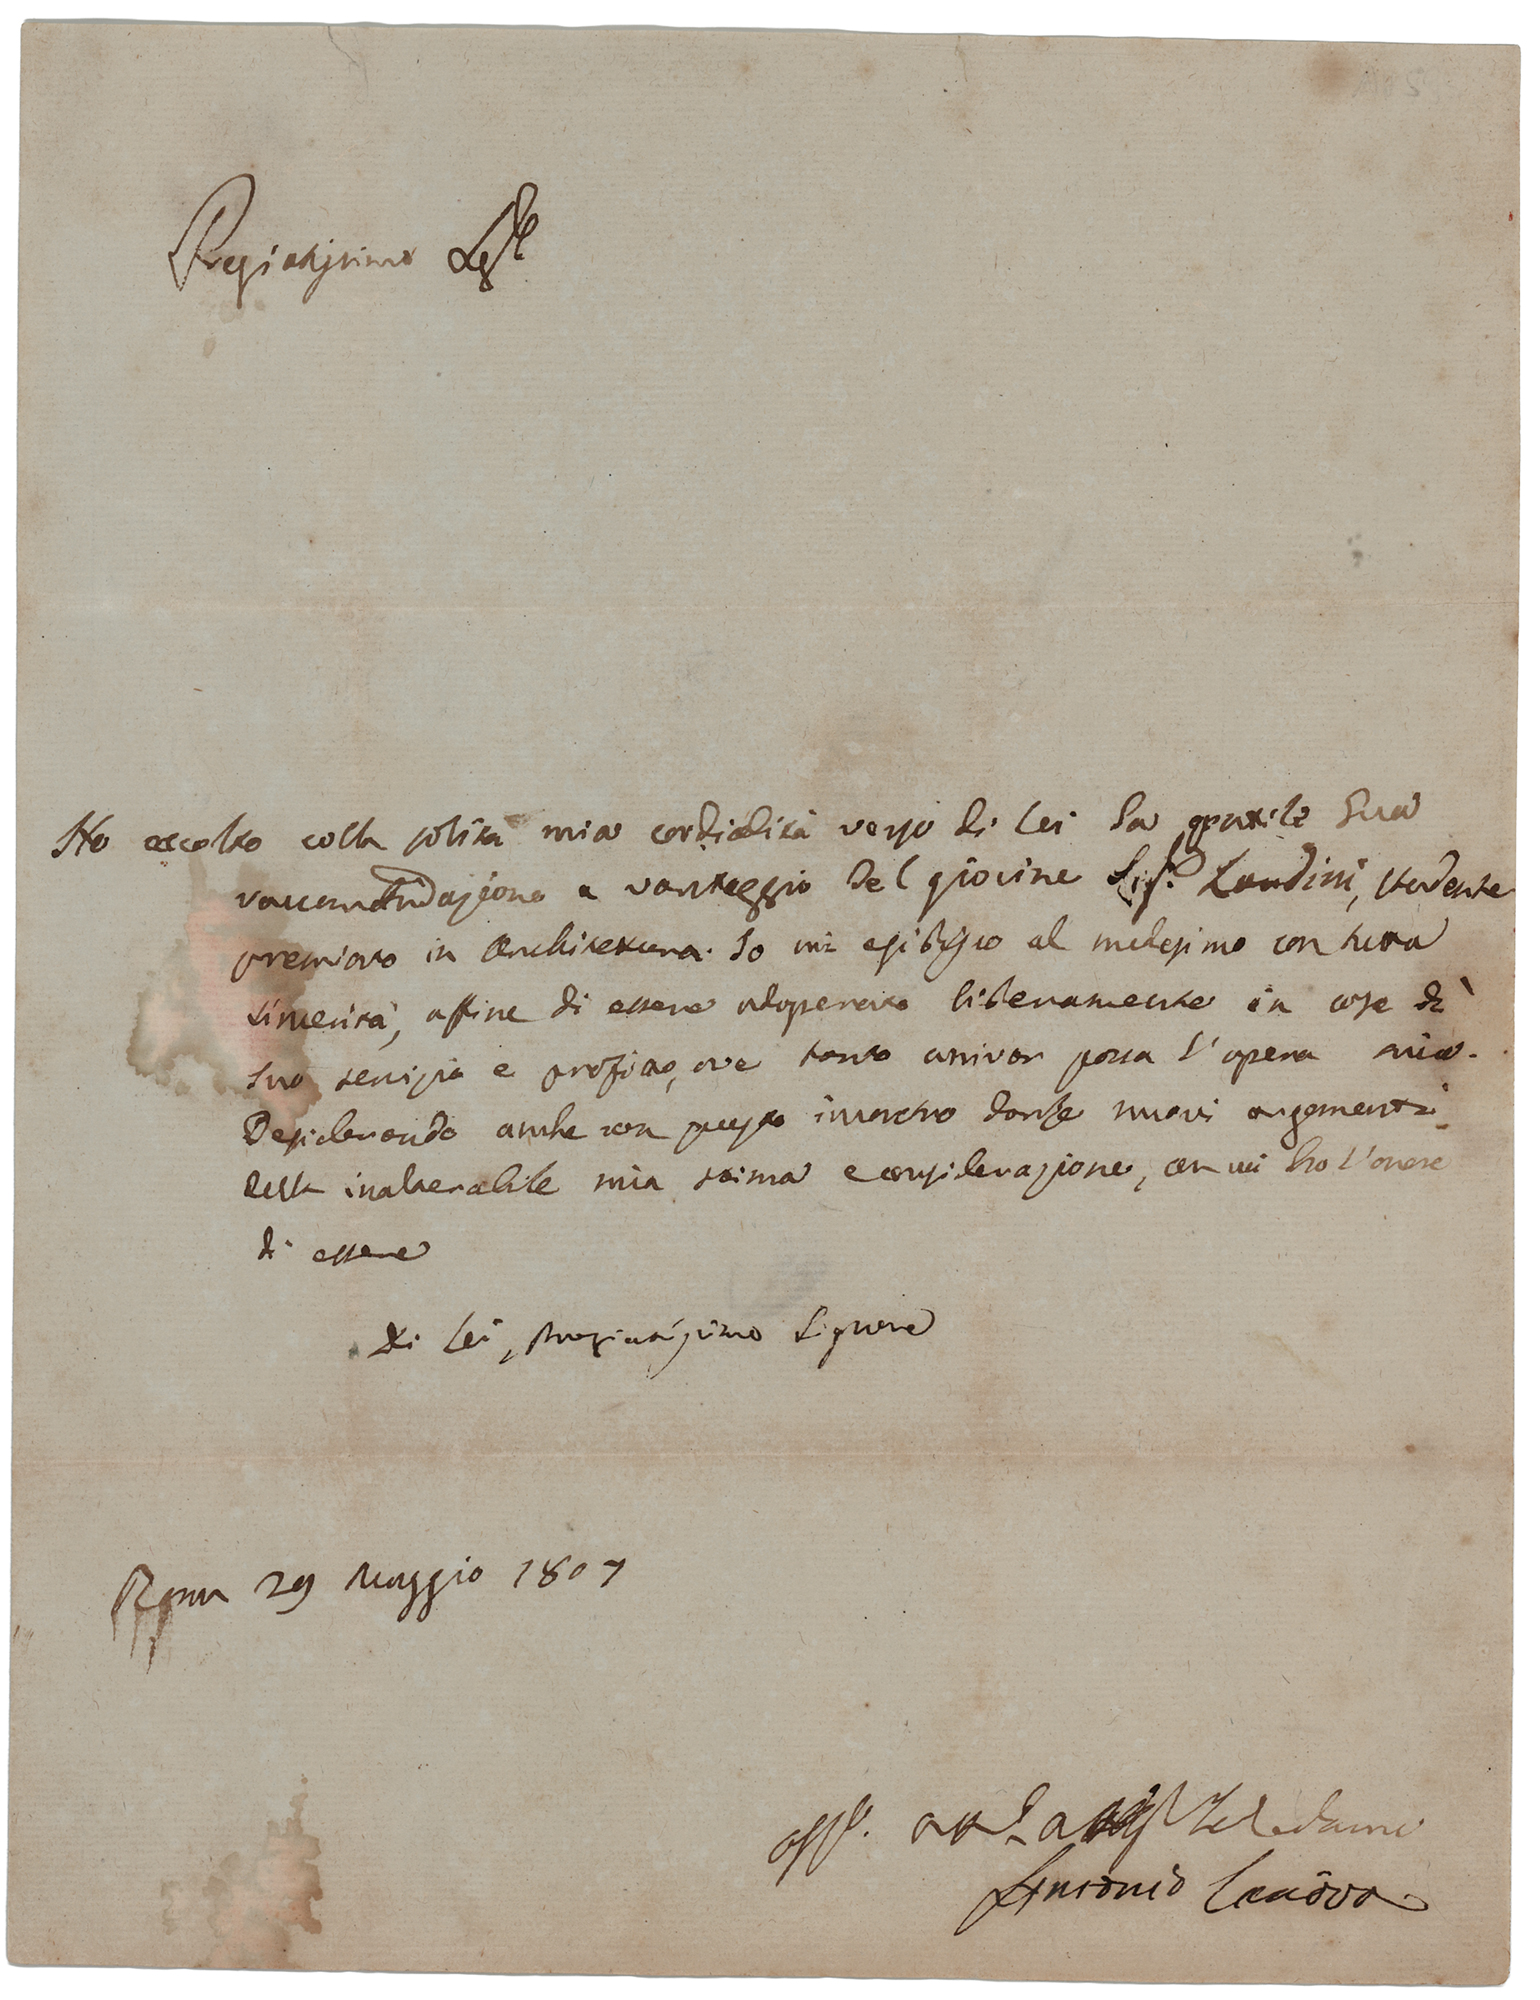 Pregiatissimo Sigre
Ho accolto colla solita mia cordialità verso di Lei la gentile Sua
raccomandazione a vantaggio del giovine Sigr. Landini, studente
premiato in Architettura. Io mi esibisco al medesimo con tutta
sincerità, affine di essere adoperato liberamente in cose di
suo servizio e profitto, ove tanto arrivar possa l'opera mia.
Desiderando anche con questo incontro darle nuovi argomenti
della inalterabile mia stima e considerazione, con cui ho l'onore
di essere
di Lei, Pregiatissimo Signore
Roma 29 Maggio 1807
Antonio Canova